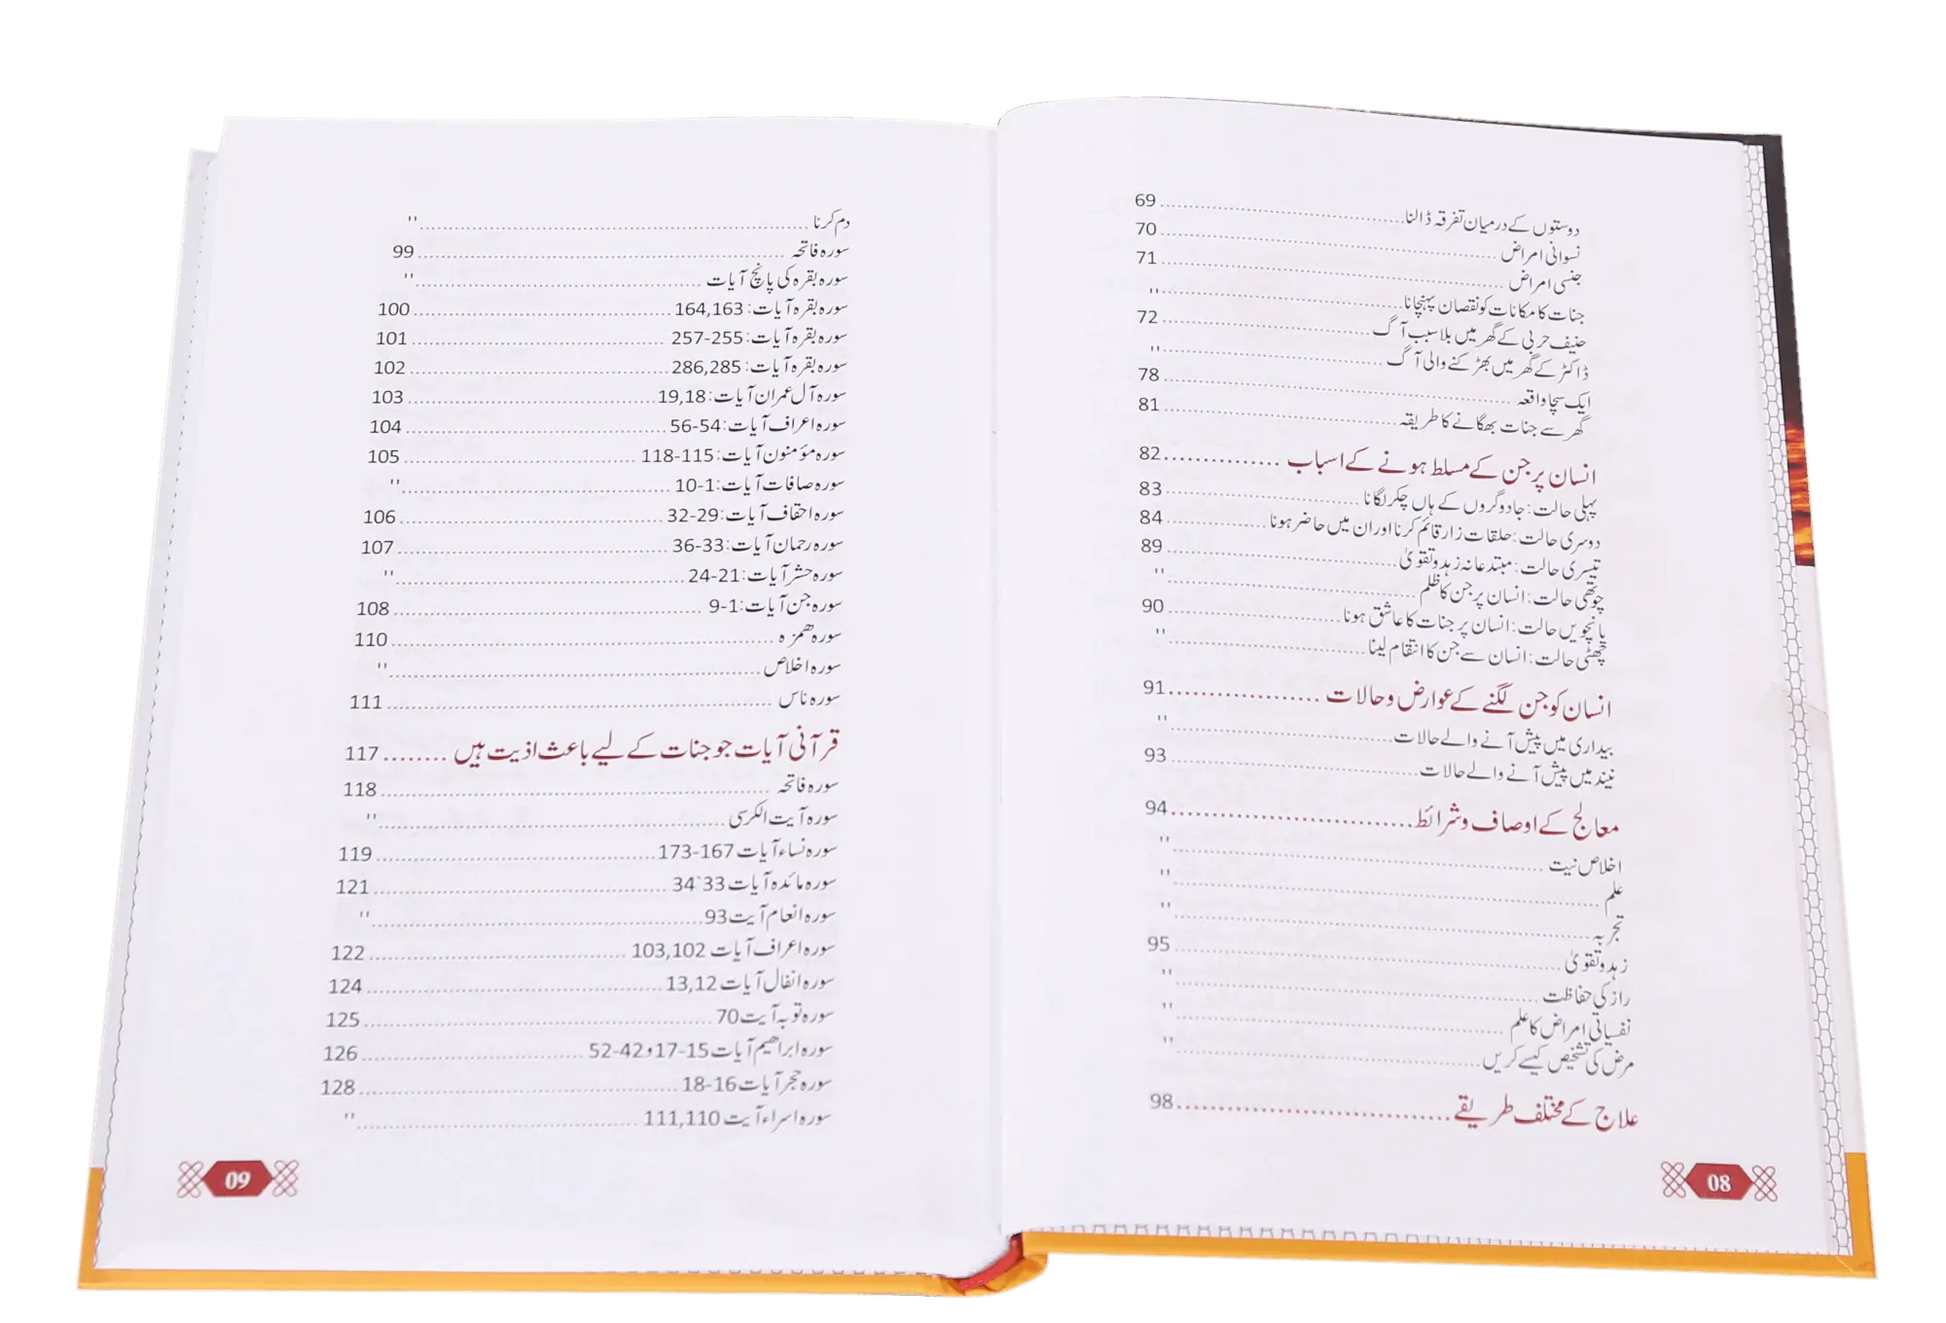 دوستوں کے درمیان تفرقہ ڈالنا 69
نسوانی امراض 70
جنسی امراض 71
جنات کا مکانات کو نقصان پہنچانا "
حنیف حربی کے گھر میں بلا سبب آگ 72
ڈاکٹر کے گھر میں بھڑکنے والی آگ "
ایک سچا واقعہ 78
گھر سے جنات بھگانے کا طریقہ 81
انسان پر جن کے مسلط ہونے کے اسباب 82
پہلی حالت: جادوگروں کے ہاں چکر لگانا 83
دوسری حالت: حلقات زار قائم کرنا اور ان میں حاضر ہونا 84
تیسری حالت: مبتدعانہ زہد و تقویٰ 89
چوتھی حالت: انسان پر جن کا ظلم "
پانچویں حالت: انسان پر جنات کا عاشق ہونا 90
چھٹی حالت: انسان سے جن کا انتقام لینا "
انسان کو جن لگنے کے عوارض و حالات 91
بیداری میں پیش آنے والے حالات "
نیند میں پیش آنے والے حالات 93
معالج کے اوصاف و شرائط 94
اخلاص نیت "
علم "
تجربہ "
زہد و تقویٰ 95
راز کی حفاظت "
نفسیاتی امراض کا علم "
مرض کی تشخیص کیسے کریں "
علاج کے مختلف طریقے 98
08
دم کرنا "
سورہ فاتحہ 99
سورہ بقرہ کی پانچ آیات "
سورہ بقرہ آیات: 164,163 100
سورہ بقرہ آیات: 257-255 101
سورہ بقرہ آیات: 286,285 102
سورہ آل عمران آیات: 19,18 103
سورہ اعراف آیات: 56-54 104
سورہ مؤمنون آیات: 118-115 105
سورہ صافات آیات: 10-1 "
سورہ احقاف آیات: 32-29 106
سورہ رحمان آیات: 36-33 107
سورہ حشر آیات: 24-21 "
سورہ جن آیات: 9-1 108
سورہ ھمزہ 110
سورہ اخلاص "
سورہ ناس 111
قرآنی آیات جو جنات کے لیے باعث اذیت ہیں 117
سورہ فاتحہ 118
سورہ آیت الکرسی "
سورہ نساء آیات 173-167 119
سورہ مائدہ آیات 34`33 121
سورہ انعام آیت 93 "
سورہ اعراف آیات 103,102 122
سورہ انفال آیات 13,12 124
سورہ توبہ آیت 70 125
سورہ ابراھیم آیات 17-15 و 52-42 126
سورہ حجر آیات 18-16 128
سورہ اسراء آیت 111,110 "
09